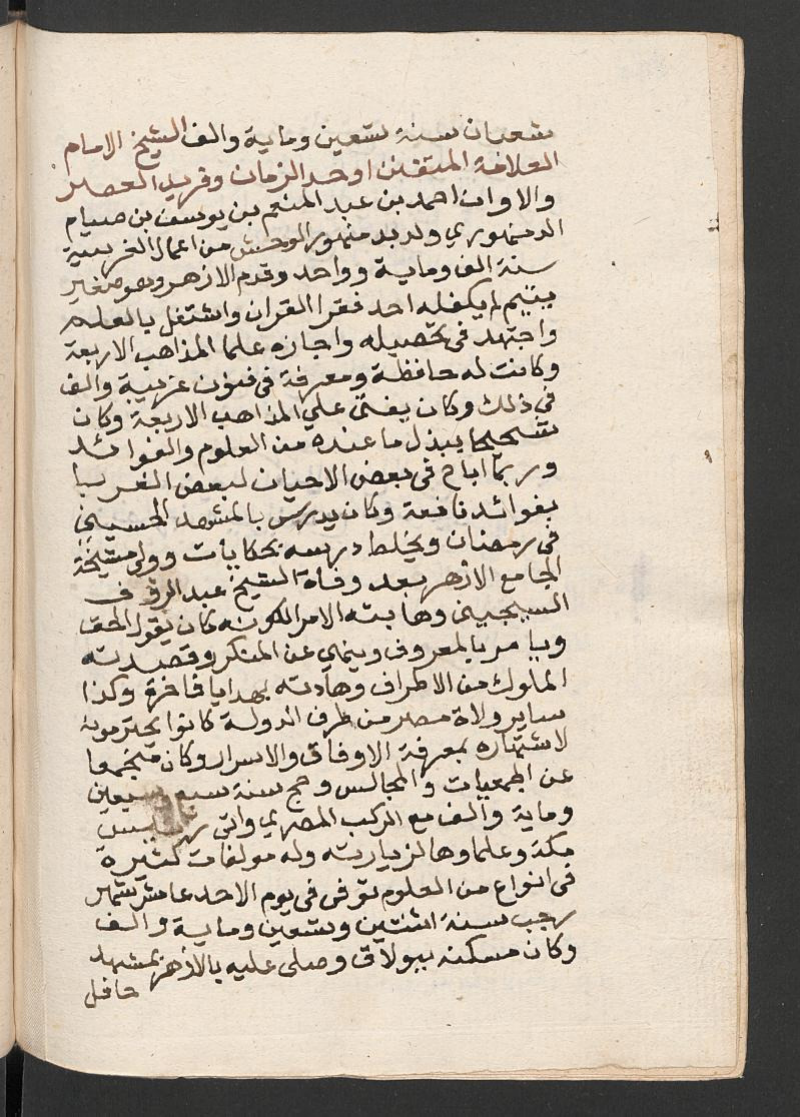 شعبان سنة تسعين وماية والف الشيخ الامام
العلامة المتفنن اوحد الزمان وفريد العصر
والاوان احمد بن عبد المنعم بن يوسف بن صيام
الدمنهوري ولد بدمنهور الوحش من اعمال الغربية
سنة الف وماية وواحد وقدم الازهر وهو صغير
يتيم لم يكفله احد فقرا القران واشتغل بالعلم
واجتهد في تحصيله واجازه علما المذاهب الاربعة
وكانت له حافظة ومعرفة في فنون غريبة والف
في ذلك وكان يفتي علي المذاهب الاربعة وكان
شحيحا يبذل ما عنده من العلوم والفوائد
وربما اباح في بعض الاحيان لبعض الغربا
بفوائد نافعة وكان يدرس بالمشهد الحسيني
في رمضان ويخلط درسه بحكايات وولي مشيخة
الجامع الازهر بعد وفاة الشيخ عبد الروف
السجيني وهابته الامرا لكونه كان يقول الحق
ويامر بالمعروف وينهي عن المنكر وقصدته
الملوك من الاطراف وهادته بهدايا فاخرة وكذا
ساير ولاة مصر من طرف الدولة كانوا يحترمونه
لاشتهاره بمعرفة الاوفاق والاسرار وكان منجمعا
عن الجمعيات والمجالس وحج سنة سبع وسبعين
وماية والف مع الركب المصري واتي رييس
مكة وعلماوها لزيارته وله مولفات كثيرة
في انواع من العلوم توفي في يوم الاحد عاشر شهر
رجب سنة اثنتين وتسعين وماية والف
وكان مسكنه ببولاق وصلي عليه بالازهر بمشهد
حافل